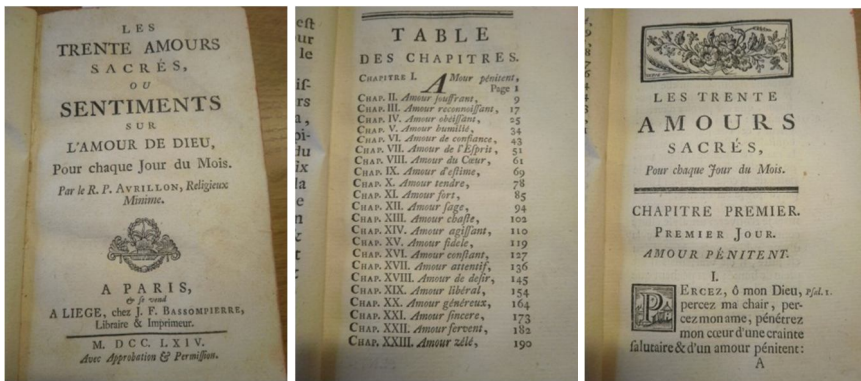 LES
TRENTE AMOURS
SACRÉS,
OU
SENTIMENTS
SUR
L'AMOUR DE DIEU,
Pour chaque Jour du Mois.
Par le R. P. AVRILLON, Religieux
Minime.
A PARIS,
& se vend
A LIEGE, chez J. F. BASSOMPIERRE,
Libraire & Imprimeur.
M. DCC. LXIV.
Avec Approbation & Permission.
TABLE
DES CHAPITRES.
CHAPITRE I. AMour pénitent,
Page 1
CHAP. II. Amour souffrant, 9
CHAP. III. Amour reconnoissant, 17
CHAP. IV. Amour obéissant, 25
CHAP. V. Amour humilié, 34
CHAP. VI. Amour de confiance, 43
CHAP. VII. Amour de l'Esprit, 51
CHAP. VIII. Amour du Cœur, 61
CHAP. IX. Amour d'estime, 69
CHAP. X. Amour tendre, 78
CHAP. XI. Amour fort, 85
CHAP. XII. Amour sage, 94
CHAP. XIII. Amour chaste, 102
CHAP. XIV. Amour agissant, 110
CHAP. XV. Amour fidele, 119
CHAP. XVI. Amour constant, 127
CHAP. XVII. Amour attentif, 136
CHAP. XVIII. Amour de desir, 145
CHAP. XIX. Amour libéral, 154
CHAP. XX. Amour généreux, 164
CHAP. XXI. Amour sincere, 173
CHAP. XXII. Amour fervent, 182
CHAP. XXIII. Amour zélé, 190
LES TRENTE
AMOURS
SACRÉS,
Pour chaque Jour du Mois.
CHAPITRE PREMIER.
PREMIER JOUR.
AMOUR PÉNITENT.
I.
PERCEZ, ô mon Dieu, Psal. 1.
percez ma chair, per-
cez mon ame, pénétrez
mon cœur d'une crainte
salutaire & d'un amour pénitent:
A